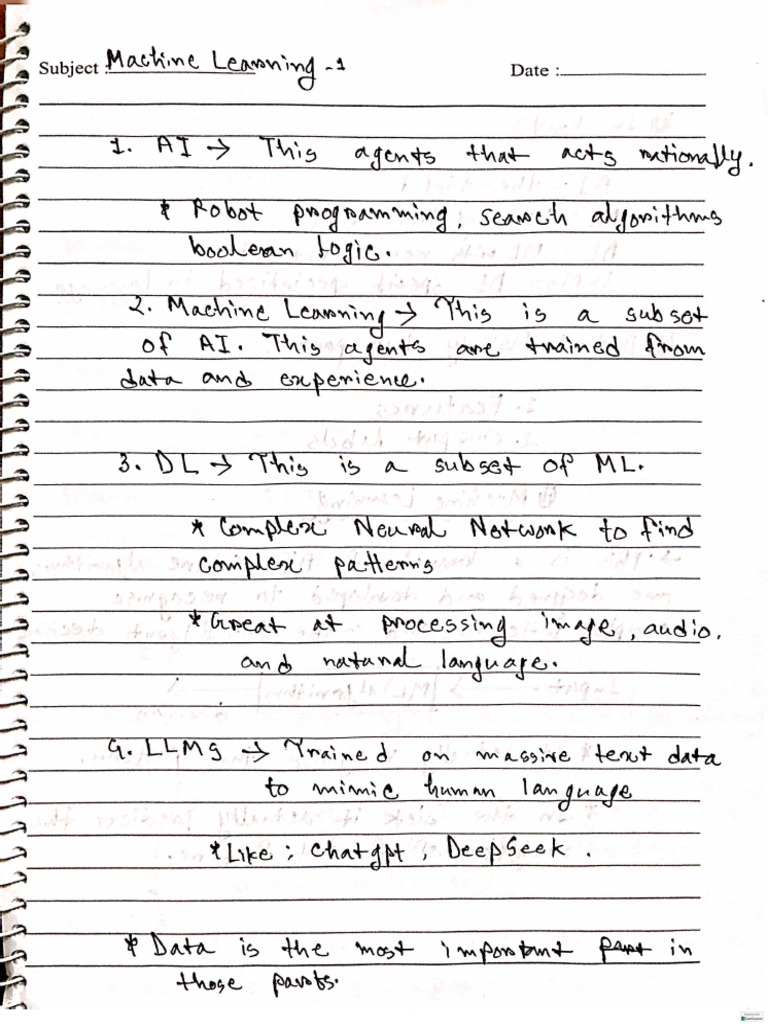 Subject : Machine Learning - 1 Date :
1. AI → This agents that acts rationally.
* Robot programming, search algorithms
boolean logic.
2. Machine Learning → This is a subset
of AI. This agents are trained from
data and experience.
3. DL → This is a subset of ML.
* Complex Neural Network to find
complex patterns
* Great at processing image, audio.
and natural language.
4. LLMs → Trained on massive text data
to mimic human language
* Like : Chatgpt, DeepSeek.
* Data is the most important part in
those parts.